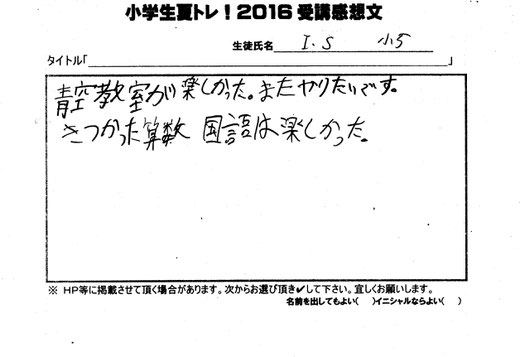 小学生夏トレ！2016受講感想文
生徒氏名 I.S 小5
タイトル「 」
青空教室が楽しかった。またやりたいです。
きつかった算数 国語は楽しかった。
※ HP等に掲載させて頂く場合があります。次からお選び頂き✔して下さい。宜しくお願いします。
名前を出してもよい（ ）イニシャルならよい（ ）